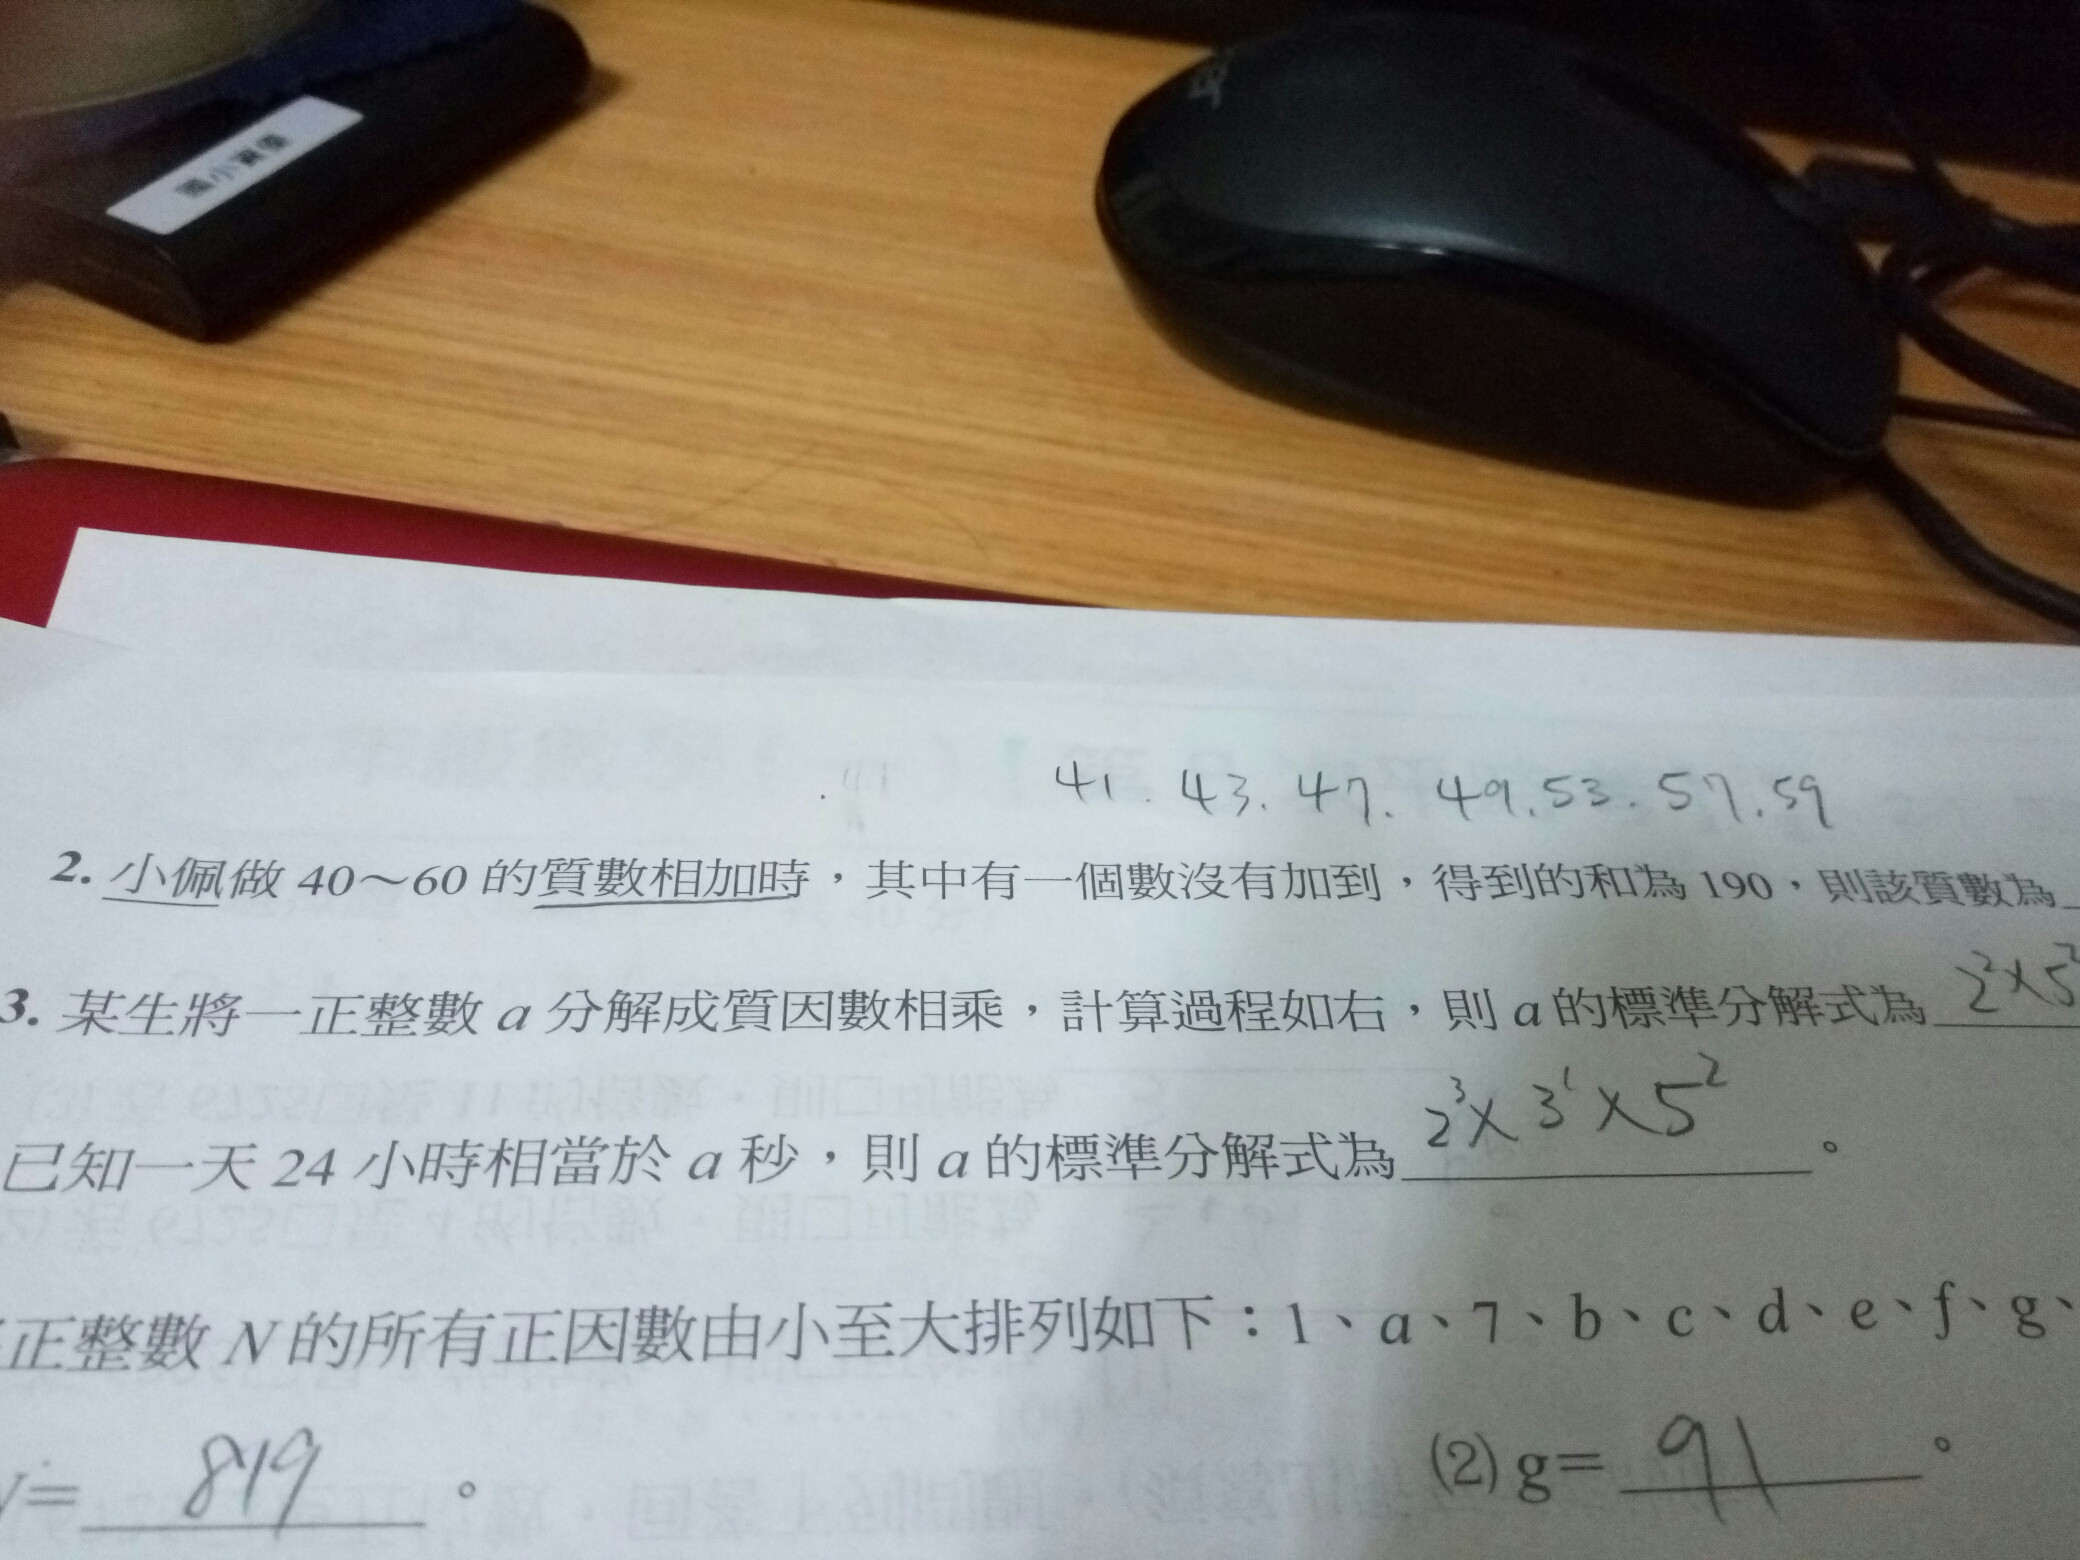 國小資優
41. 43. 47. 49. 53. 57. 59
2. 小佩做 40～60 的質數相加時，其中有一個數沒有加到，得到的和為 190，則該質數為
2²×5²
3. 某生將一正整數 a 分解成質因數相乘，計算過程如右，則 a 的標準分解式為
2³×3¹×5²
已知一天 24 小時相當於 a 秒，則 a 的標準分解式為 。
正整數 N 的所有正因數由小至大排列如下：1、a、7、b、c、d、e、f、g、
= 819 。 (2) g= 91 。